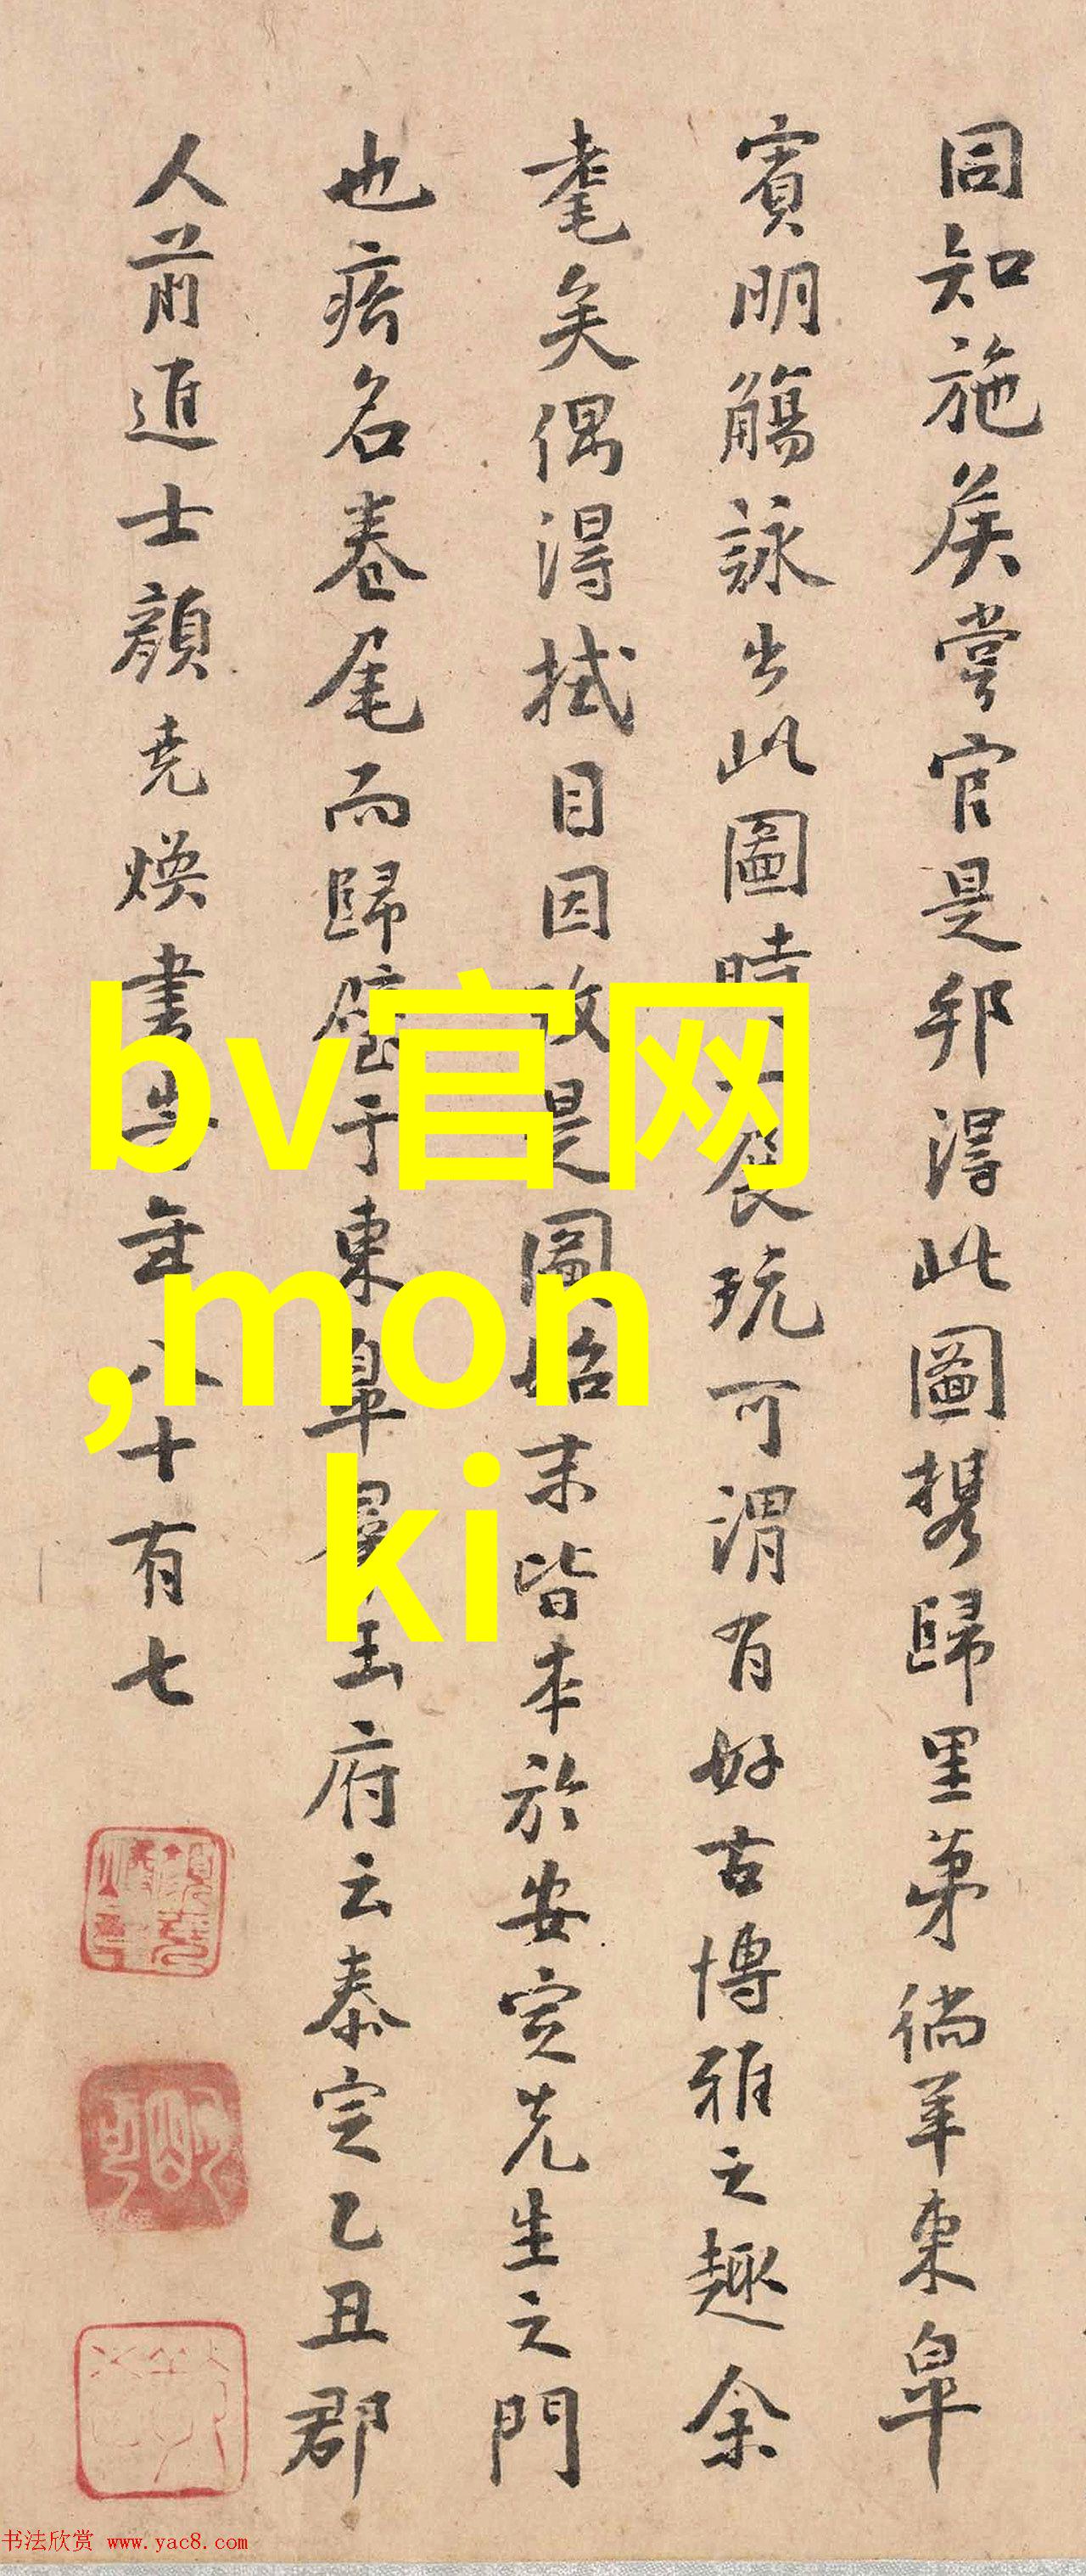 同知施矦嘗官是邦淂此圖携歸里苐徜羊東皐
賓明觴詠出此圖時一展玩可謂有好古博雅之趣余
耄矣偶淂拭目因攷是圖始末皆本於安定先生之門
也瘔名卷尾而歸璧于東皐羣玉府云泰定乙丑郡
人前進士顏堯煥書于主八十有七
bv官网
,mon
ki
书法欣赏 www.yac8.com